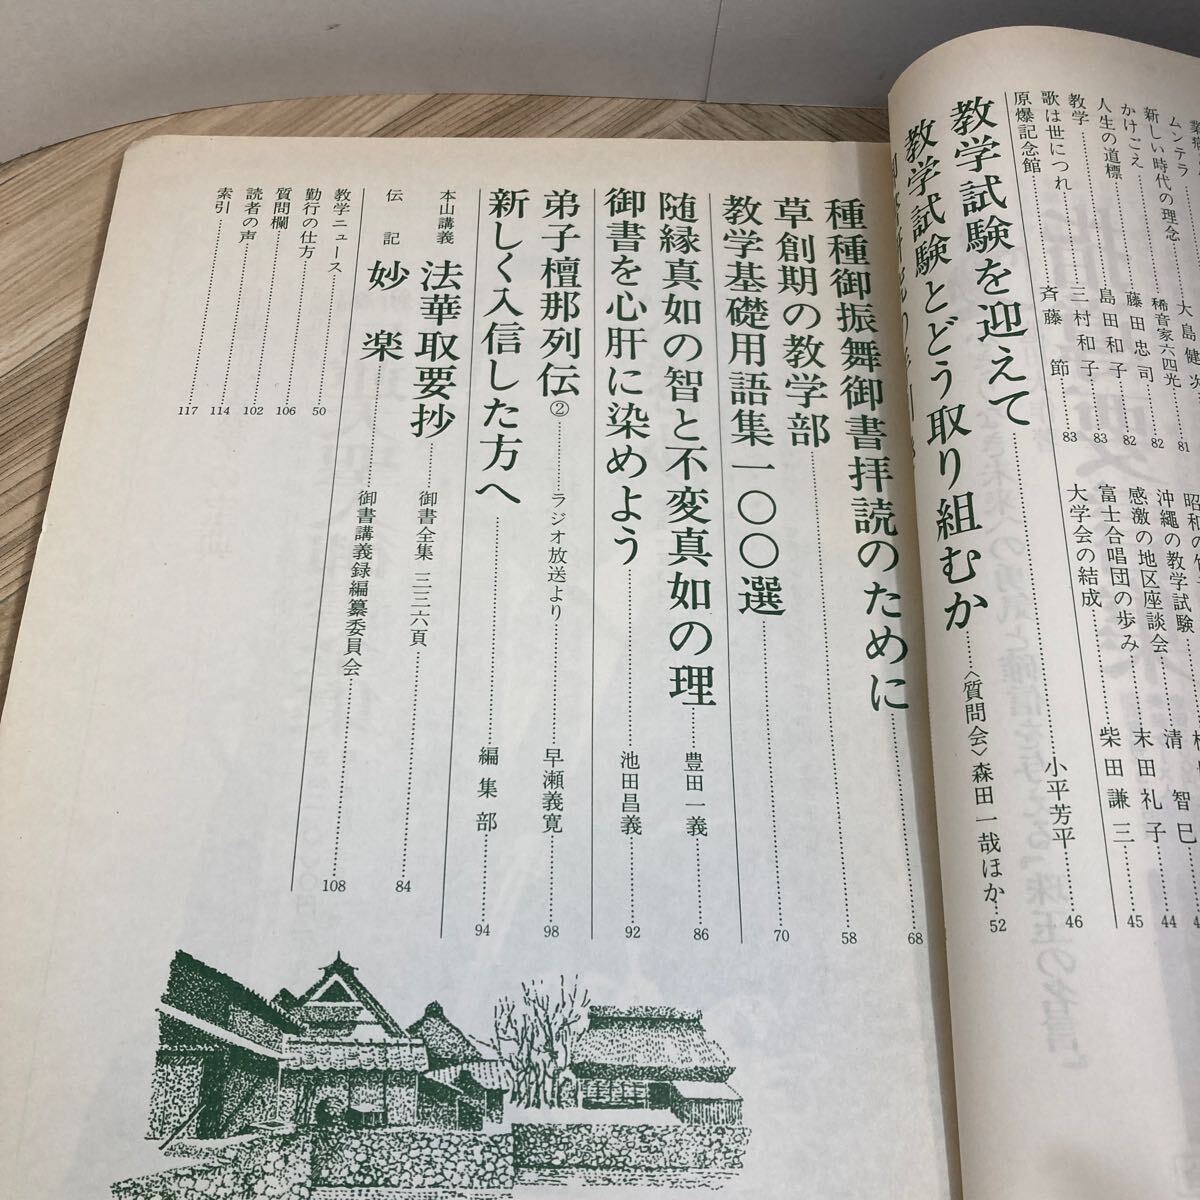 ムンテラ……大島健次……81
新しい時代の理念……稀音家六四光……82
かけごえ……藤田忠司……82
人生の道標……島田和子……83
教学……三村和子……83
歌は世につれ
原爆記念館……斉藤節
沖縄の教学試験……清智巳……44
感激の地区座談会……末田礼子……45
富士合唱団の歩み……柴田謙三
大学会の結成
教学試験を迎えて……小平芳平……46
教学試験とどう取り組むか……〈質問会〉森田一哉ほか…52
種種御振舞御書拝読のために……68
草創期の教学部……58
教学基礎用語集一〇〇選……70
随縁真如の智と不変真如の理……豊田一義……86
御書を心肝に染めよう……池田昌義……92
弟子檀那列伝②……ラジオ放送より……早瀬義寛……98
新しく入信した方へ……編集部……94
本山講義 法華取要抄……御書全集 三三六頁……84
伝記 妙楽……御書講義録編纂委員会……108
教学ニュース……50
勤行の仕方
質問欄……106
読者の声……102
索引……114
117